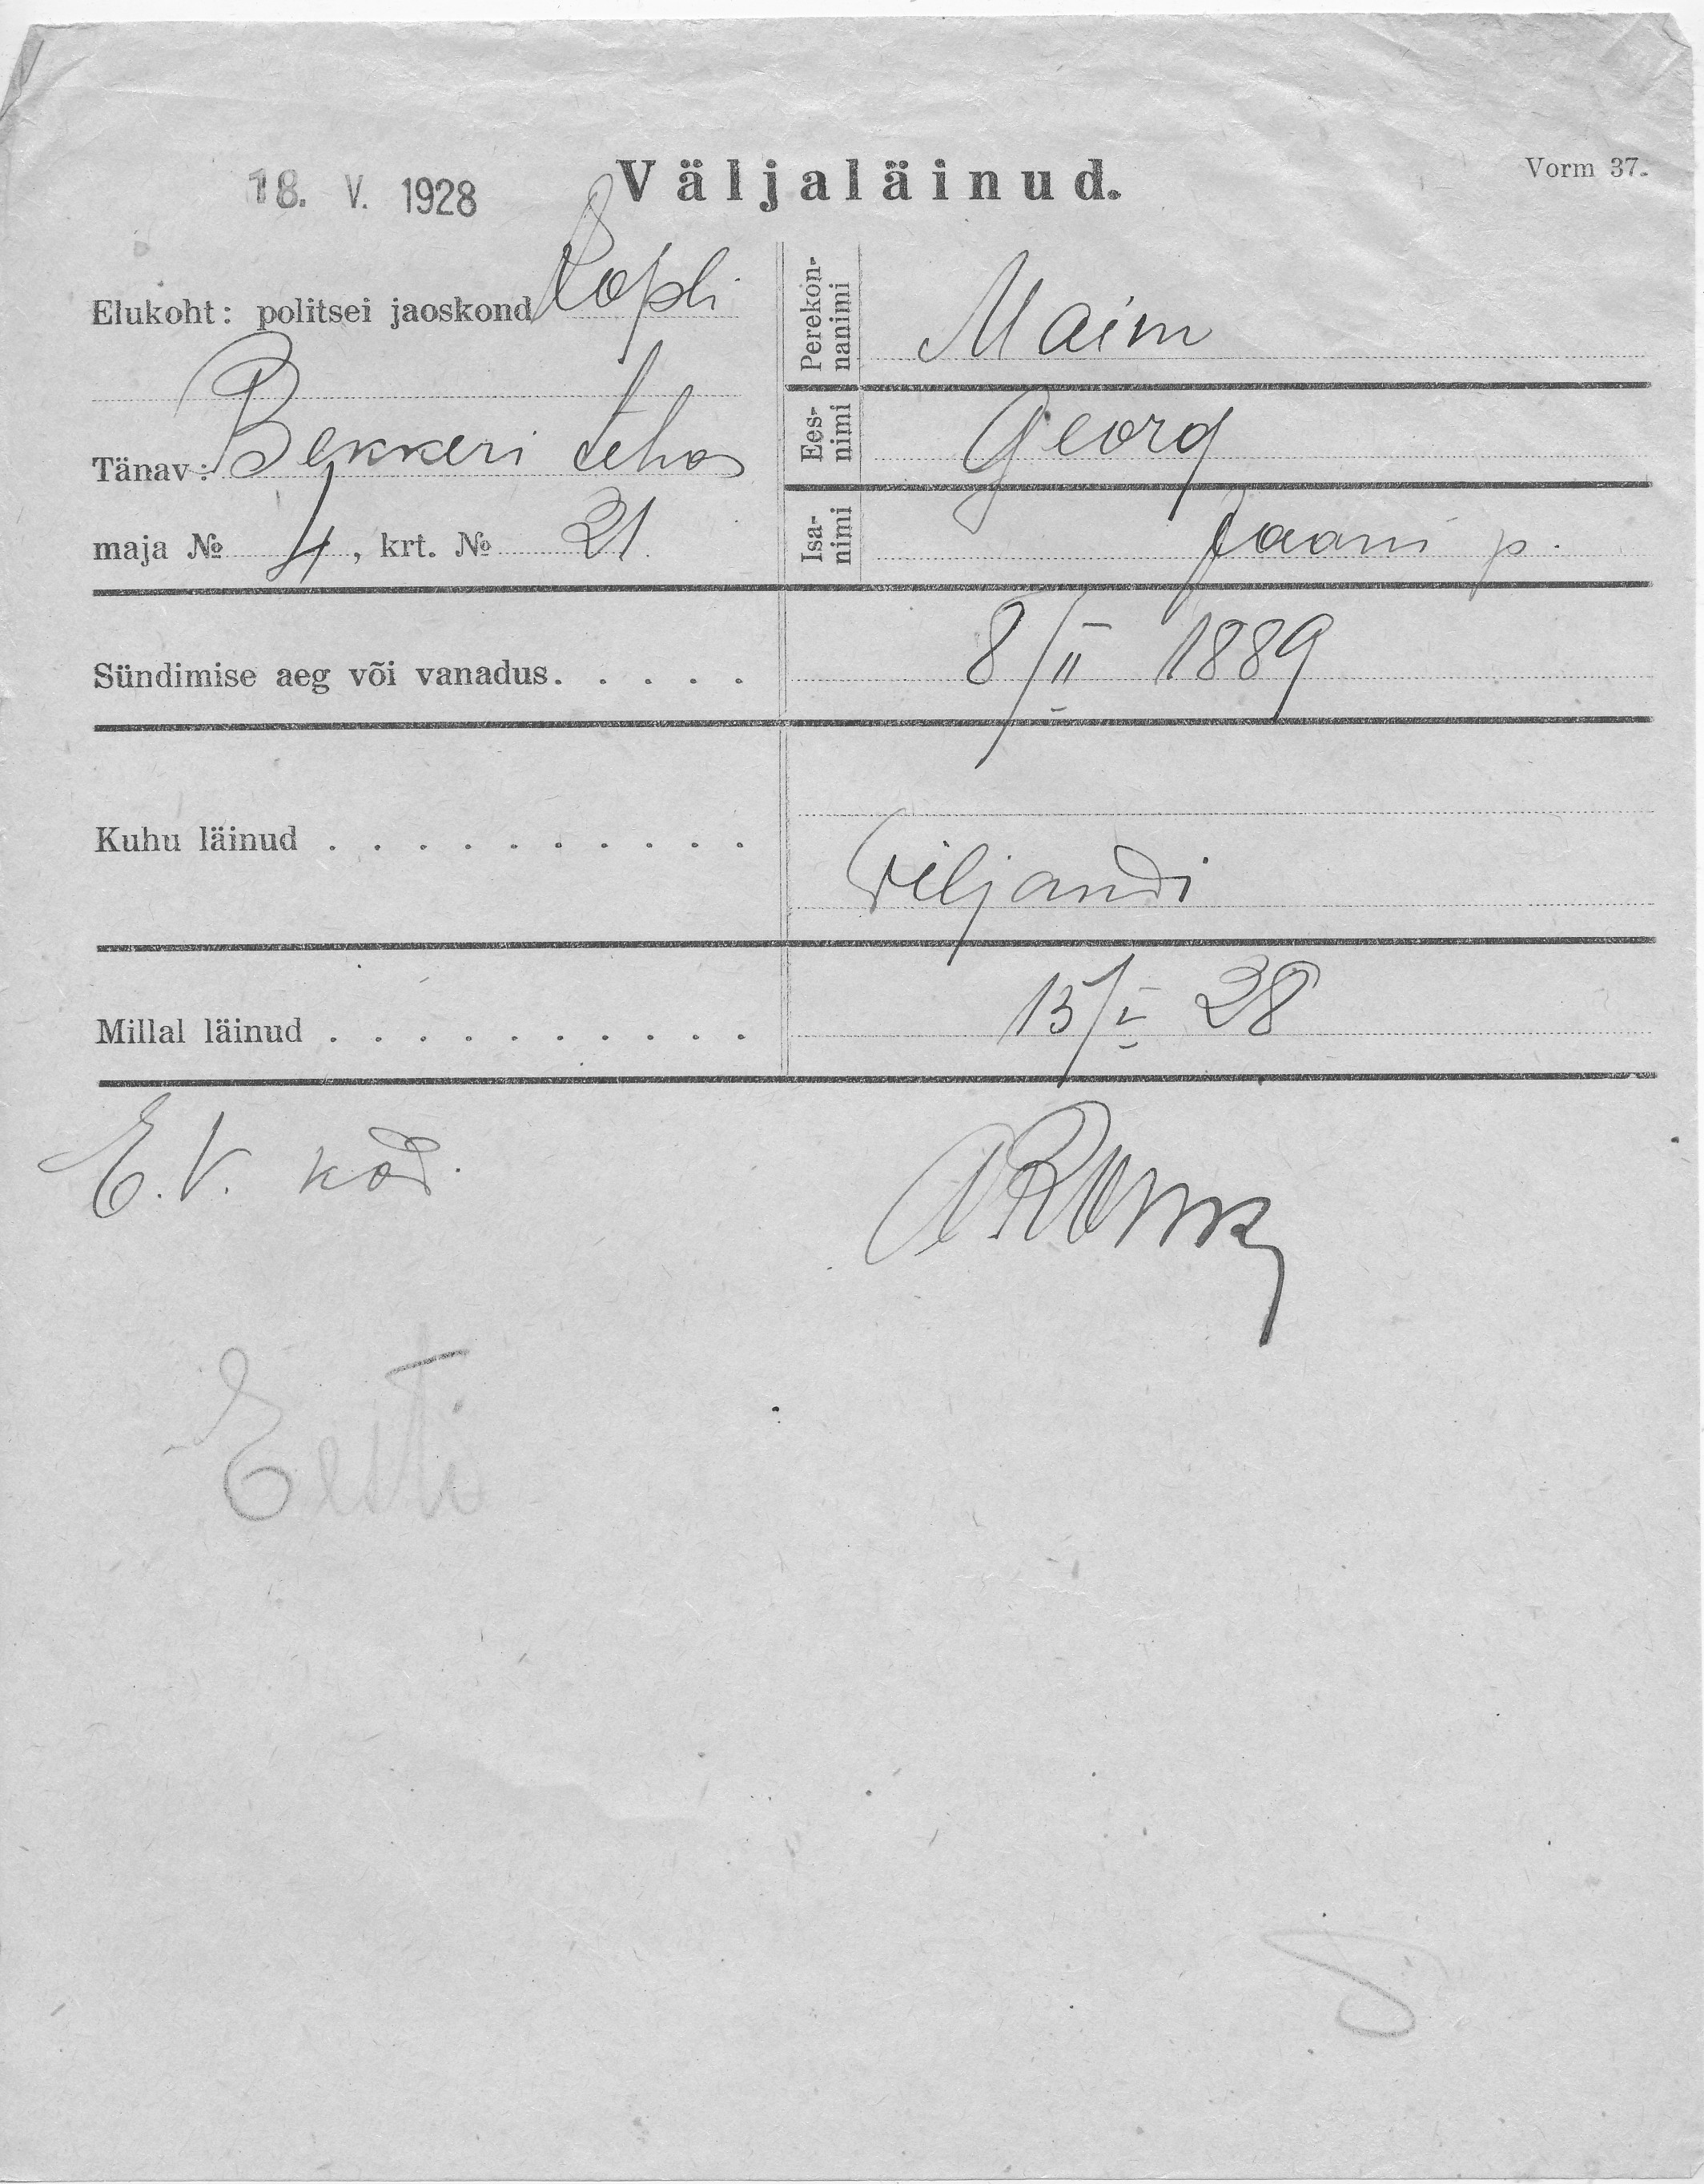 18. V. 1928
Väljaläinud.
Vorm 37.
Elukoht: politsei jaoskond Kopli
Tänav: Bekkeri tehas
maja № 4, krt. № 21.
Perekon-
nanimi
Maim
Ees-
nimi
Georg
Isa-
nimi
Jaani p.
Sündimise aeg või vanadus. . . . . 8/II 1889
Kuhu läinud . . . . . . . . . . Viljandi
Millal läinud . . . . . . . . . . 15/V 28
E.V. kod.
Eesti